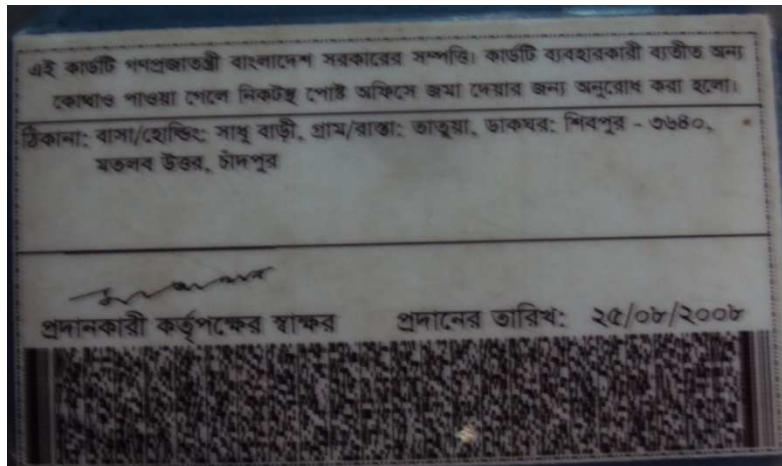 এই কার্ডটি গণপ্রজাতন্ত্রী বাংলাদেশ সরকারের সম্পত্তি। কার্ডটি ব্যবহারকারী ব্যতীত অন্য
কোথাও পাওয়া গেলে নিকটস্থ পোষ্ট অফিসে জমা দেয়ার জন্য অনুরোধ করা হলো।
ঠিকানা: বাসা/হোল্ডিং: সাধু বাড়ী, গ্রাম/রাস্তা: ভাতুয়া, ডাকঘর: শিবপুর - ৩৬৪০,
মতলব উত্তর, চাঁদপুর
প্রদানকারী কর্তৃপক্ষের স্বাক্ষর প্রদানের তারিখ: ২৫/০৮/২০০৮